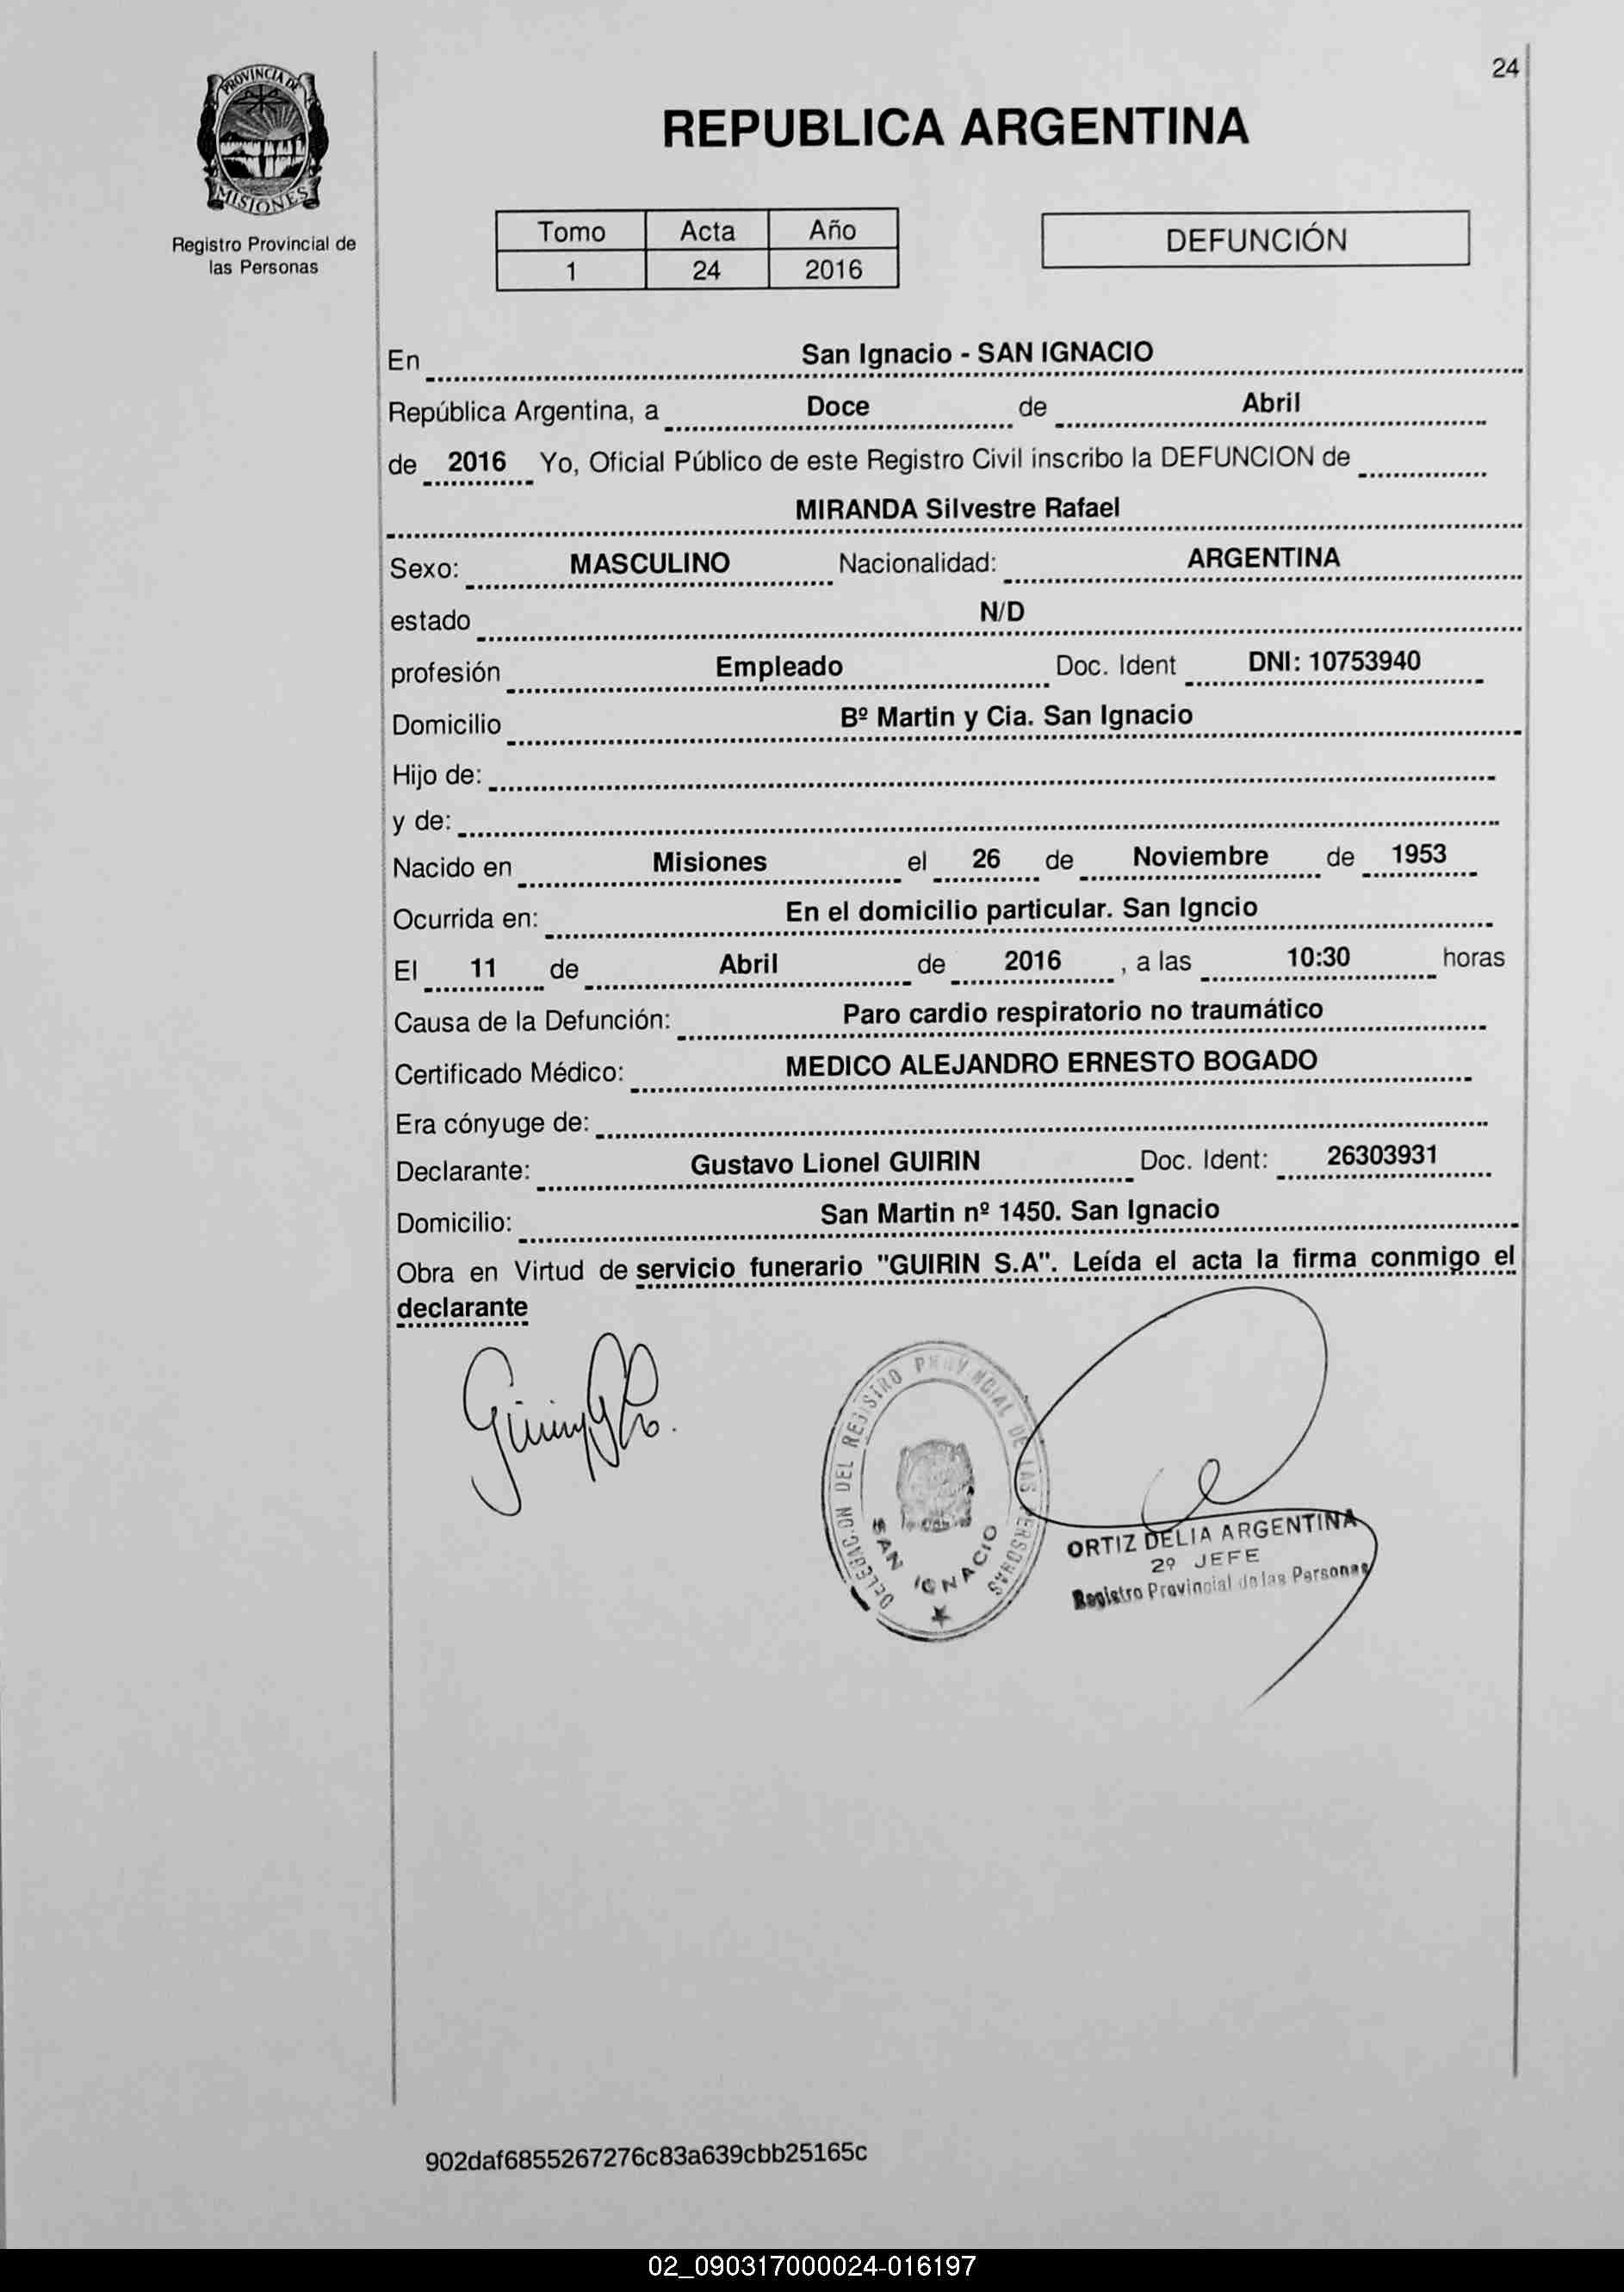 24
PROVINCIA DE
MISIONES
Registro Provincial de
las Personas
REPUBLICA ARGENTINA
Tomo Acta Año
1 24 2016
DEFUNCIÓN
En San Ignacio - SAN IGNACIO
República Argentina, a Doce de Abril
de 2016 Yo, Oficial Público de este Registro Civil inscribo la DEFUNCION de
MIRANDA Silvestre Rafael
Sexo: MASCULINO Nacionalidad: ARGENTINA
estado N/D
profesión Empleado Doc. Ident DNI: 10753940
Domicilio Bº Martin y Cia. San Ignacio
Hijo de:
y de:
Nacido en Misiones el 26 de Noviembre de 1953
Ocurrida en: En el domicilio particular. San Igncio
El 11 de Abril de 2016 , a las 10:30 horas
Causa de la Defunción: Paro cardio respiratorio no traumático
Certificado Médico: MEDICO ALEJANDRO ERNESTO BOGADO
Era cónyuge de:
Declarante: Gustavo Lionel GUIRIN Doc. Ident: 26303931
Domicilio: San Martin nº 1450. San Ignacio
Obra en Virtud de servicio funerario "GUIRIN S.A". Leída el acta la firma conmigo el
declarante
DELEGACION DEL REGISTRO PROVINCIAL DE LAS PERSONAS
SAN IGNACIO
ORTIZ DELIA ARGENTINA
2º JEFE
Registro Provincial de las Personas
902daf6855267276c83a639cbb25165c
02_090317000024-016197